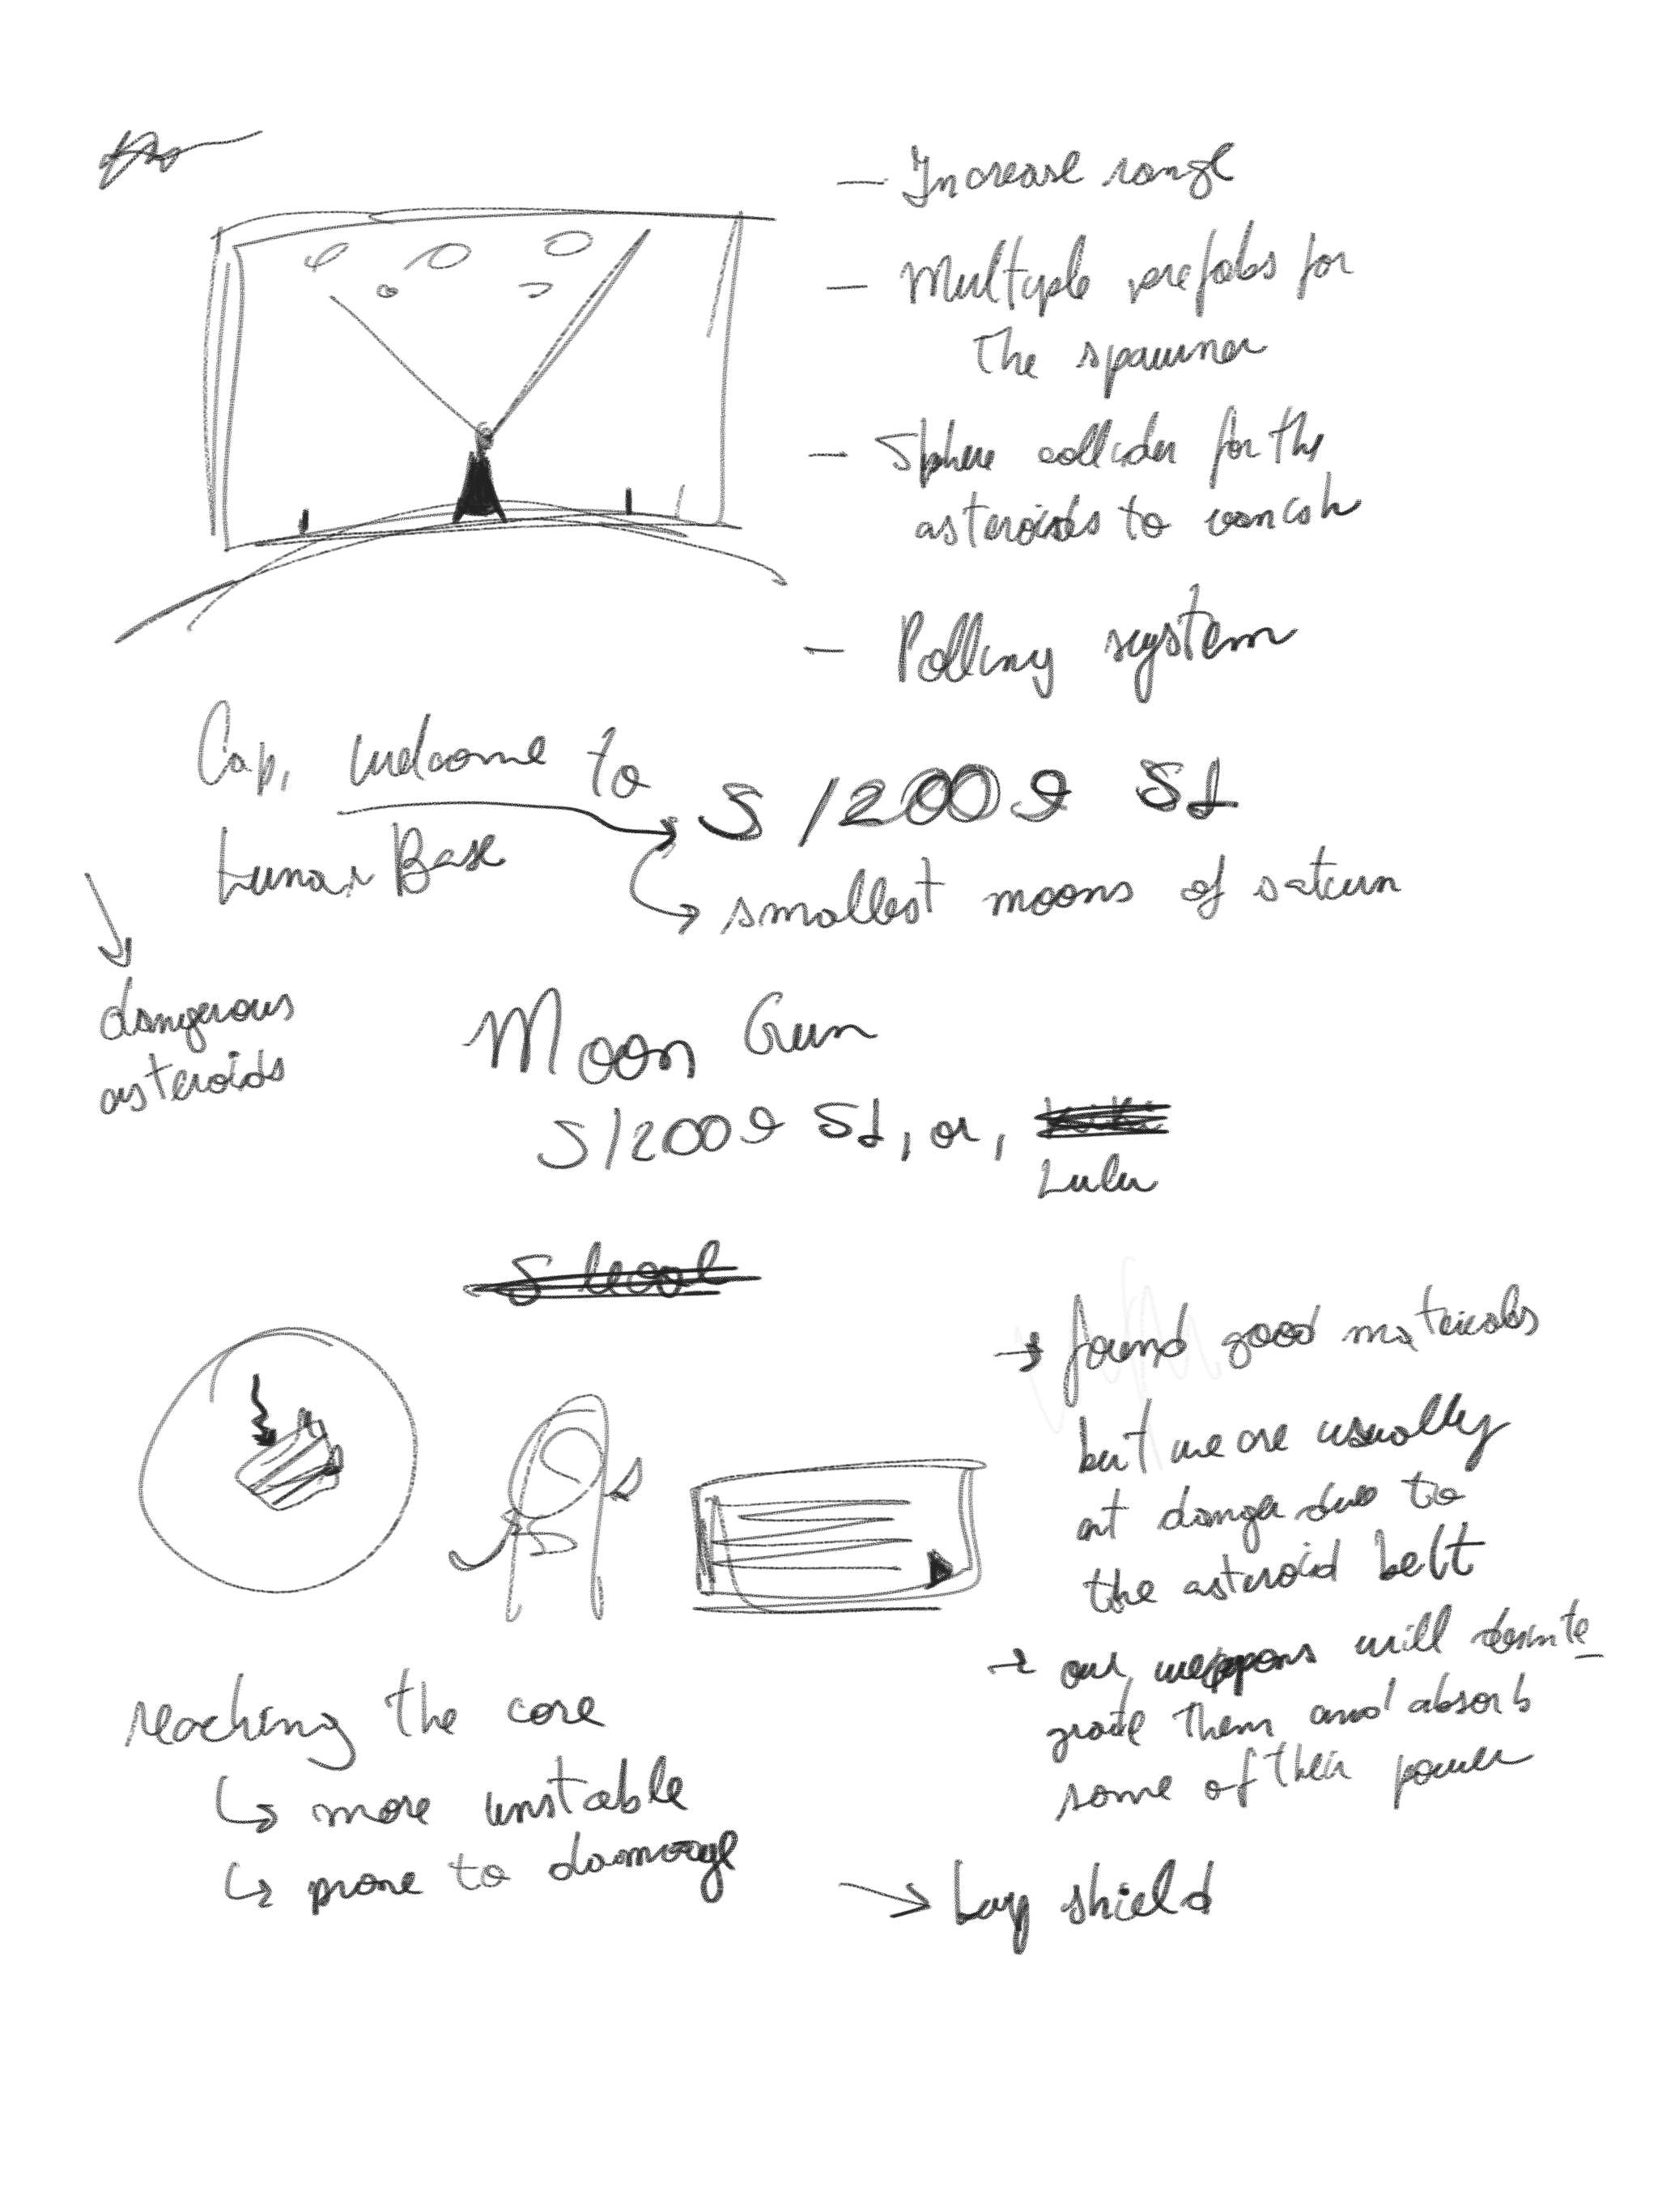 - Increase range
- Multiple prefabs for
the spawner
- Sphere collider for the
asteroids to vanish
- Polling system
Cap, welcome to
S/2009 S1
Lunar Base
smallest moons of saturn
dangerous
asteroids
Moon Gun
S/2009 S1, or,
Lulu
→ found good materials
but we are usually
at danger due to
the asteroid belt
→ our weapons will desinte_
grate them and absorb
some of their power
reaching the core
↳ more unstable
↳ prone to damage
→ Lay shield